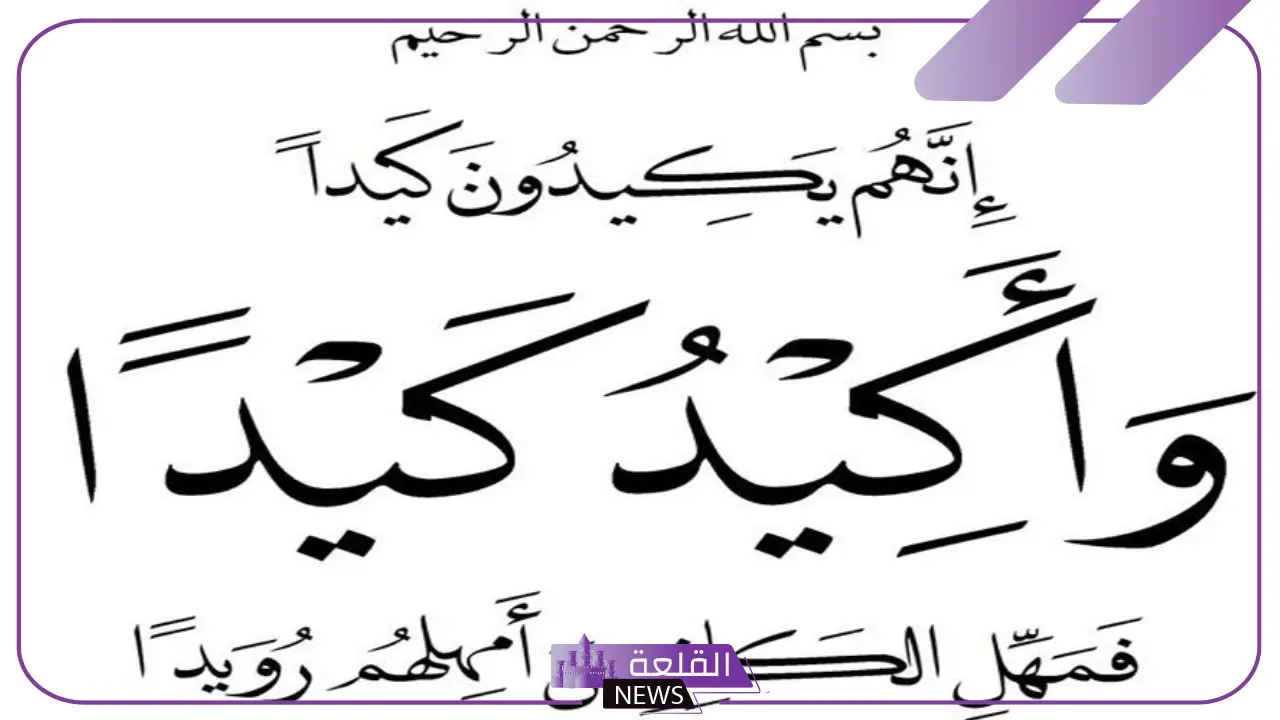 بسم الله الرحمن الرحيم
إِنَّهُم يَكِيدُونَ كَيَداً
وَأَكِيْدُ كَيْدًا
فَمَهِّلِ الكَافِرِين أَمهِلهُم رُوَيدًا
القلعة
NEWS